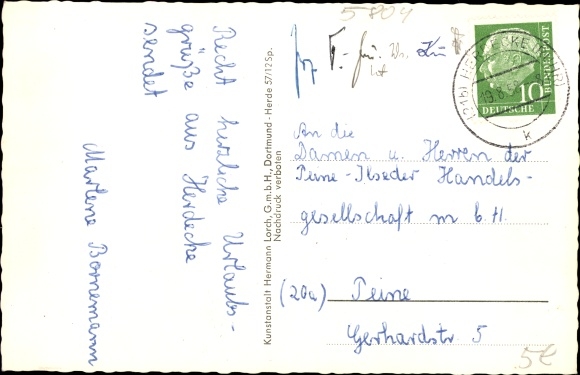 Recht herzliche Urlaubs-
grüße aus Herdecke
sendet
Marlene Bornemann
Kunstanstalt Hermann Lorch, G.m.b.H., Dortmund - Herde 57/12 Sp.
Nachdruck verboten
5804
DEUTSCHE
BUNDESPOST
10
k
An die
Damen u. Herren der
Peine-Ilseder Handels-
gesellschaft m b. H.
(20a) Peine
Gerhardstr 5
5€